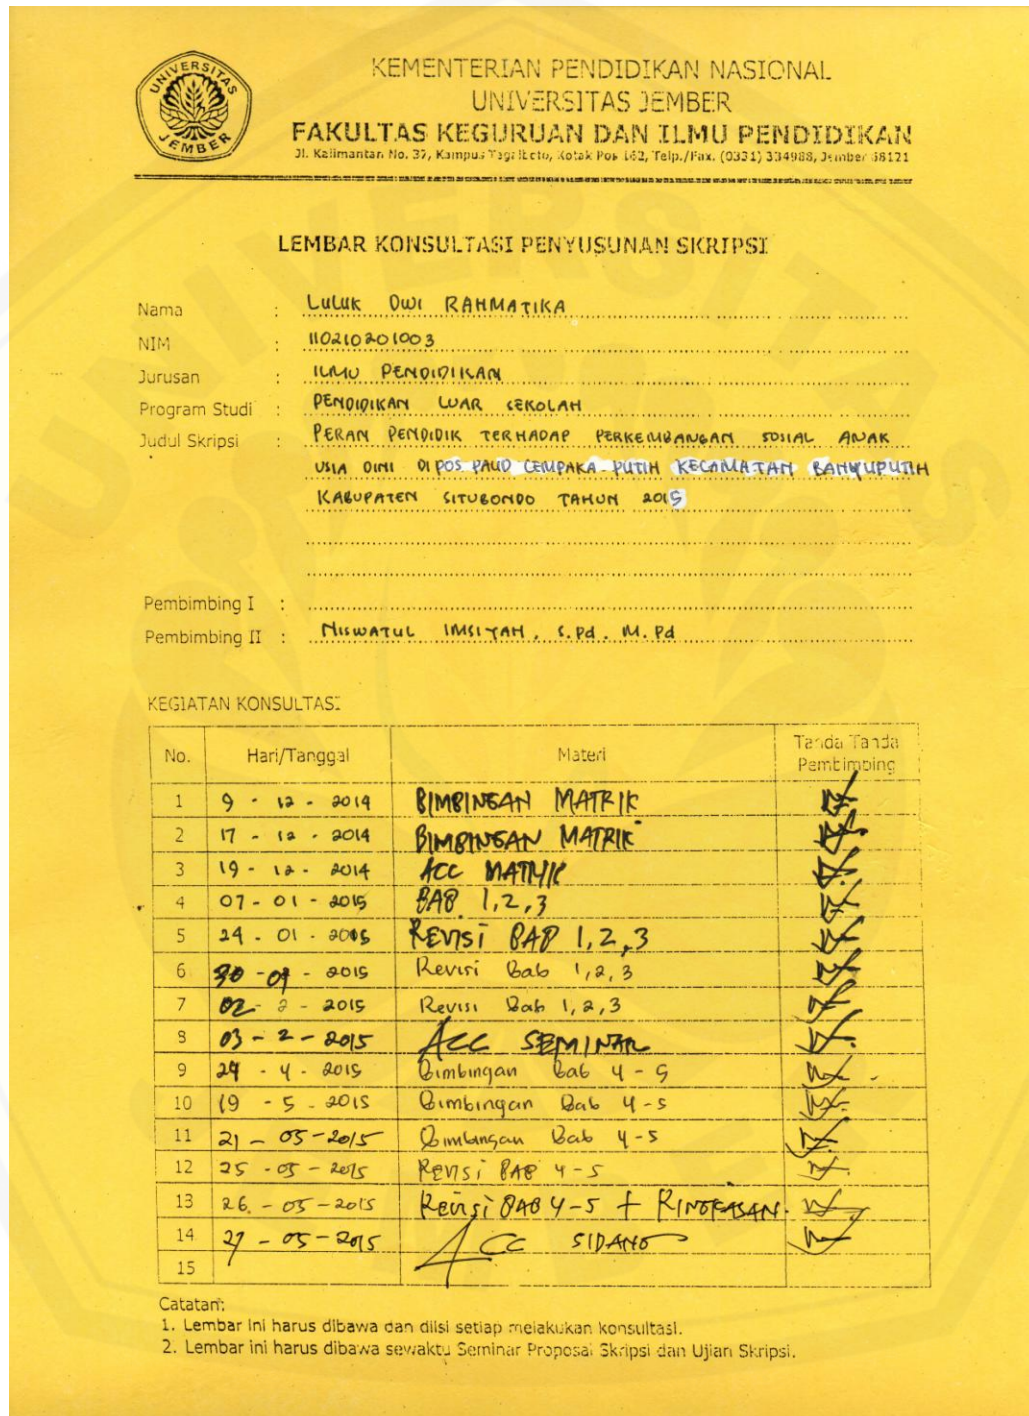 UNIVERSITAS
JEMBER
KEMENTERIAN PENDIDIKAN NASIONAL
UNIVERSITAS JEMBER
FAKULTAS KEGURUAN DAN ILMU PENDIDIKAN
Jl. Kalimantan No. 37, Kampus Tegalboto, Kotak Pos 162, Telp./Fax. (0331) 334988, Jember 68121
LEMBAR KONSULTASI PENYUSUNAN SKRIPSI
Nama : LULUK DWI RAHMATIKA
NIM : 110210201003
Jurusan : ILMU PENDIDIKAN
Program Studi : PENDIDIKAN LUAR SEKOLAH
Judul Skripsi : PERAN PENDIDIK TERHADAP PERKEMBANGAN SOSIAL ANAK
USIA DINI DI POS PAUD CEMPAKA PUTIH KECAMATAN BANYUPUTIH
KABUPATEN SITUBONDO TAHUN 2015
Pembimbing I :
Pembimbing II : NISWATUL IMSIYAH, S.Pd. M.Pd
KEGIATAN KONSULTASI
No. Hari/Tanggal Materi Tanda Tanda Pembimbing
1 9 - 12 - 2014 BIMBINGAN MATRIK
2 17 - 12 - 2014 BIMBINGAN MATRIK
3 19 - 12 - 2014 ACC MATRIK
4 07 - 01 - 2015 BAB 1,2,3
5 24 - 01 - 2015 REVISI BAB 1,2,3
6 30 - 01 - 2015 Revisi Bab 1,2,3
7 02 - 2 - 2015 Revisi Bab 1,2,3
8 03 - 2 - 2015 ACC SEMINAR
9 29 - 4 - 2015 Bimbingan Bab 4 - 5
10 19 - 5 - 2015 Bimbingan Bab 4 - 5
11 21 - 05 - 2015 Bimbingan Bab 4 - 5
12 25 - 05 - 2015 REVISI BAB 4 - 5
13 26. - 05 - 2015 Revisi BAB 4 - 5 + RINGKASAN
14 27 - 05 - 2015 ACC SIDANG
15
Catatan:
1. Lembar ini harus dibawa dan diisi setiap melakukan konsultasi.
2. Lembar ini harus dibawa sewaktu Seminar Proposal Skripsi dan Ujian Skripsi.